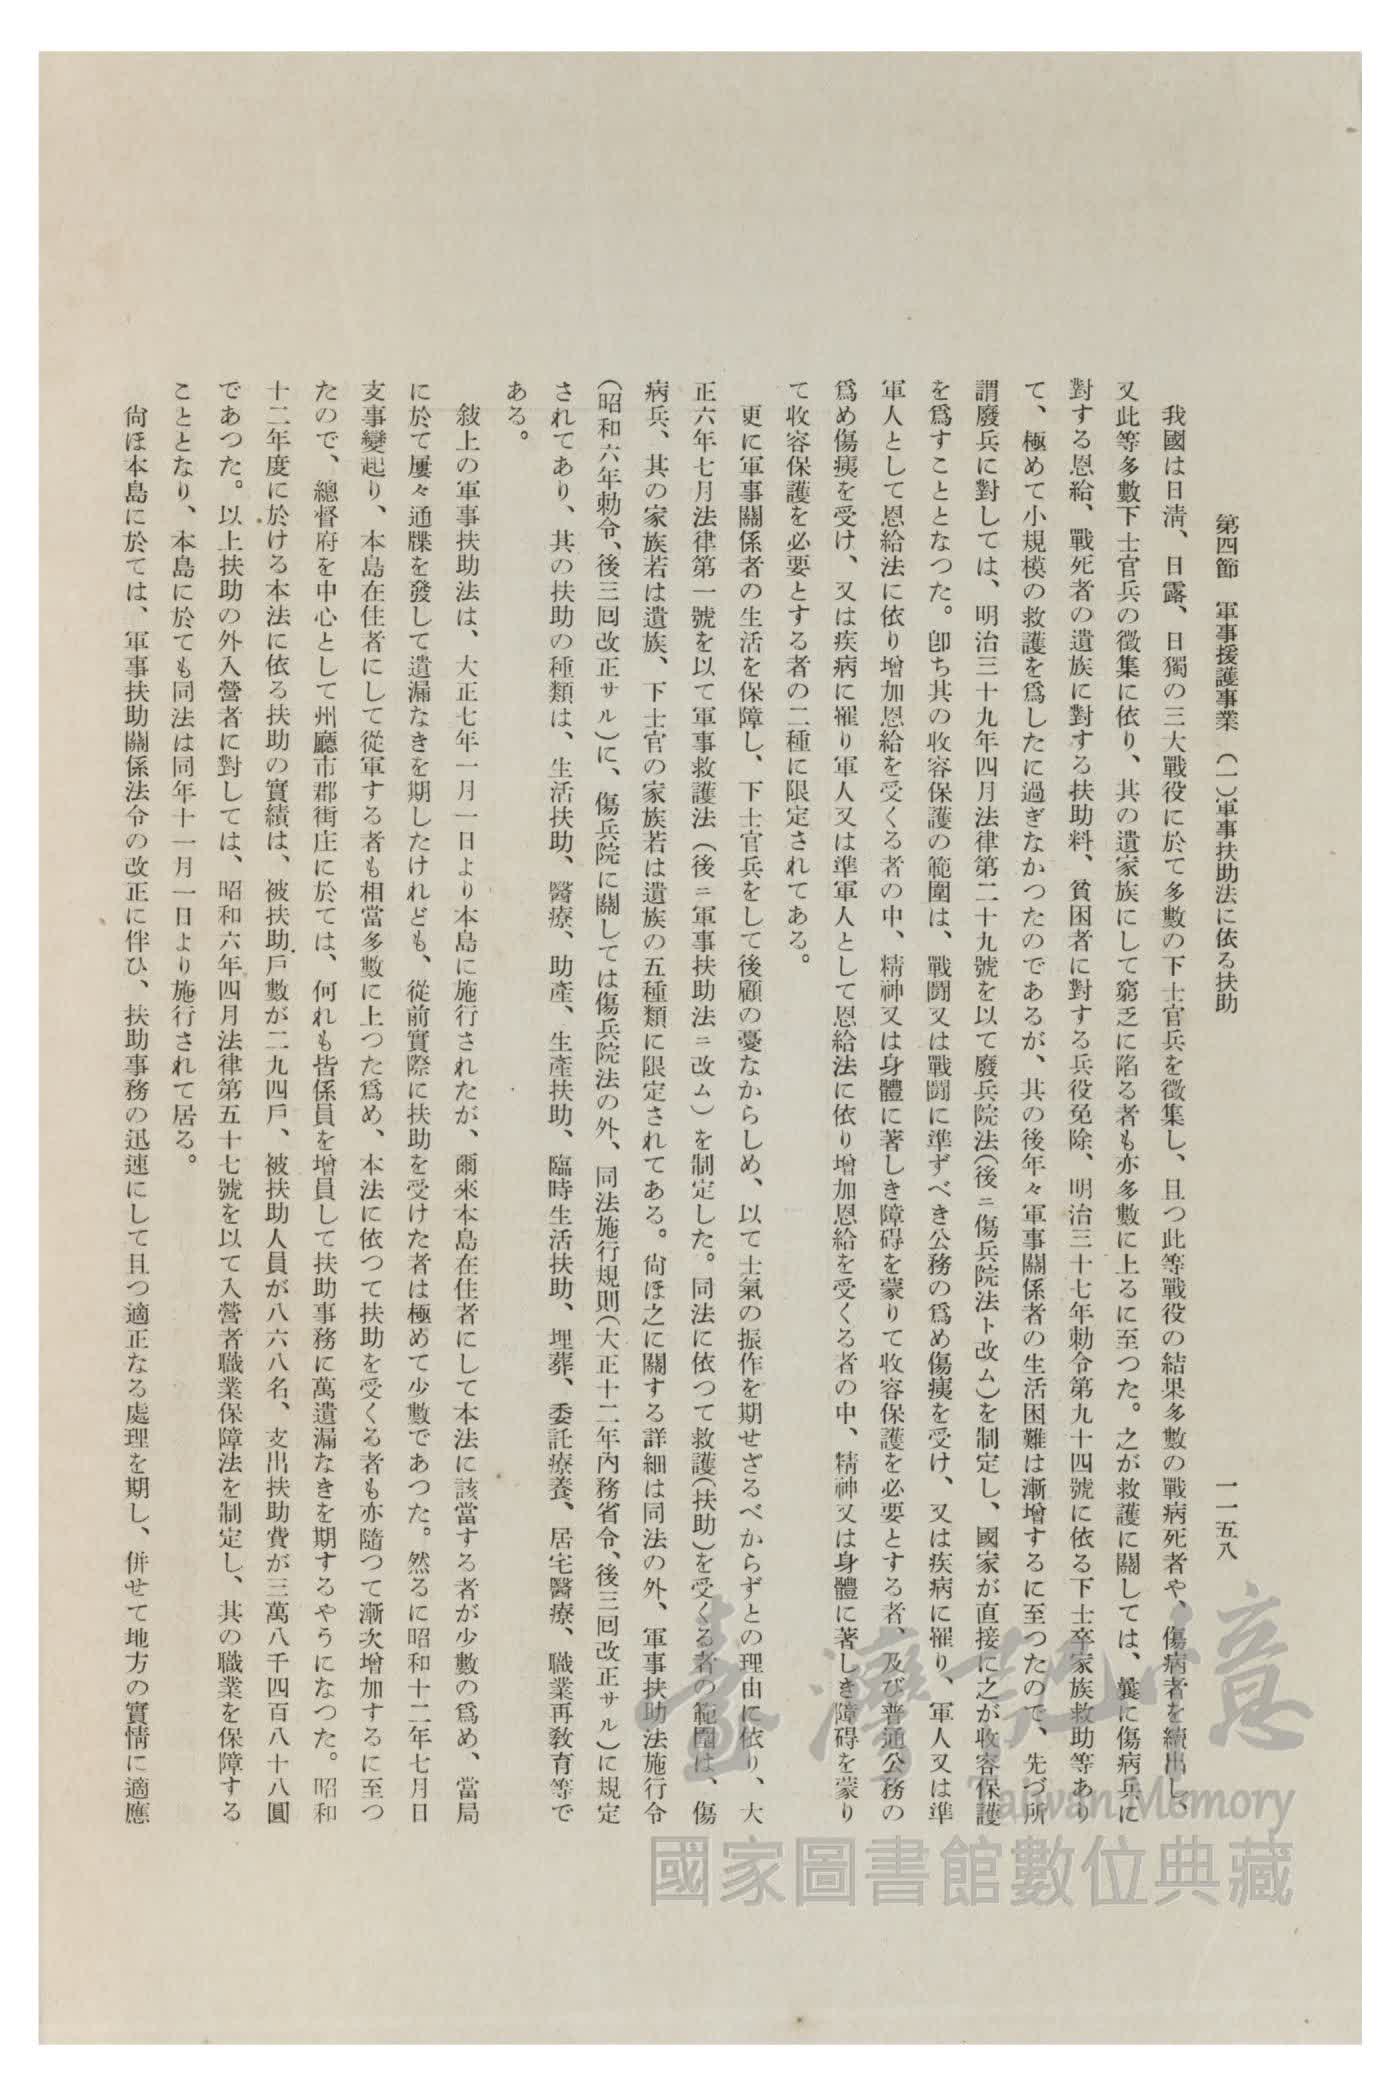 第四節　軍事援護事業　(一)軍事扶助法に依る扶助　一一五八
我國は日淸、日露、日獨の三大戰役に於て多數の下士官兵を徵集し、且つ此等戰役の結果多數の戰病死者や、傷病者を續出し、
又此等多數下士官兵の徵集に依り、其の遺家族にして窮乏に陷る者も亦多數に上るに至つた。之が救護に關しては、曩に傷病兵に
對する恩給、戰死者の遺族に對する扶助料、貧困者に對する兵役免除、明治三十七年勅令第九十四號に依る下士卒家族救助等あり
て、極めて小規模の救護を爲したに過ぎなかつたのであるが、其の後年々軍事關係者の生活困難は漸增するに至つたので、先づ所
謂廢兵に對しては、明治三十九年四月法律第二十九號を以て廢兵院法(後ニ傷兵院法ト改ム)を制定し、國家が直接に之が收容保護
を爲すこととなつた。卽ち其の收容保護の範圍は、戰鬪又は戰鬪に準ずべき公務の爲め傷痍を受け、又は疾病に罹り、軍人又は準
軍人として恩給法に依り增加恩給を受くる者の中、精神又は身體に著しき障碍を蒙りて收容保護を必要とする者、及び普通公務の
爲め傷痍を受け、又は疾病に罹り軍人又は準軍人として恩給法に依り增加恩給を受くる者の中、精神又は身體に著しき障碍を蒙り
て收容保護を必要とする者の二種に限定されてある。
更に軍事關係者の生活を保障し、下士官兵をして後顧の憂なからしめ、以て士氣の振作を期せざるべからずとの理由に依り、大
正六年七月法律第一號を以て軍事救護法(後ニ軍事扶助法ニ改ム)を制定した。同法に依つて救護(扶助)を受くる者の範圍は、傷
病兵、其の家族若は遺族、下士官の家族若は遺族の五種類に限定されてある。尙ほ之に關する詳細は同法の外、軍事扶助法施行令
(昭和六年勅令、後三回改正サル)に、傷兵院に關しては傷兵院法の外、同法施行規則(大正十二年內務省令、後三回改正サル)に規定
されてあり、其の扶助の種類は、生活扶助、醫療、助產、生產扶助、臨時生活扶助、埋葬、委託療養、居宅醫療、職業再敎育等で
ある。
敍上の軍事扶助法は、大正七年一月一日より本島に施行されたが、爾來本島在住者にして本法に該當する者が少數の爲め、當局
に於て屢々通牒を發して遺漏なきを期したけれども、從前實際に扶助を受けた者は極めて少數であつた。然るに昭和十二年七月日
支事變起り、本島在住者にして從軍する者も相當多數に上つた爲め、本法に依つて扶助を受くる者も亦隨つて漸次增加するに至つ
たので、總督府を中心として州廳市郡街庄に於ては、何れも皆係員を增員して扶助事務に萬遺漏なきを期するやうになつた。昭和
十二年度に於ける本法に依る扶助の實績は、被扶助戶數が二九四戶、被扶助人員が八六八名、支出扶助費が三萬八千四百八十八圓
であつた。以上扶助の外入營者に對しては、昭和六年四月法律第五十七號を以て入營者職業保障法を制定し、其の職業を保障する
こととなり、本島に於ても同法は同年十一月一日より施行されて居る。
尙ほ本島に於ては、軍事扶助關係法令の改正に伴ひ、扶助事務の迅速にして且つ適正なる處理を期し、併せて地方の實情に適應
臺灣記憶
Taiwan Memory
國家圖書館數位典藏